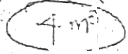 4 m²